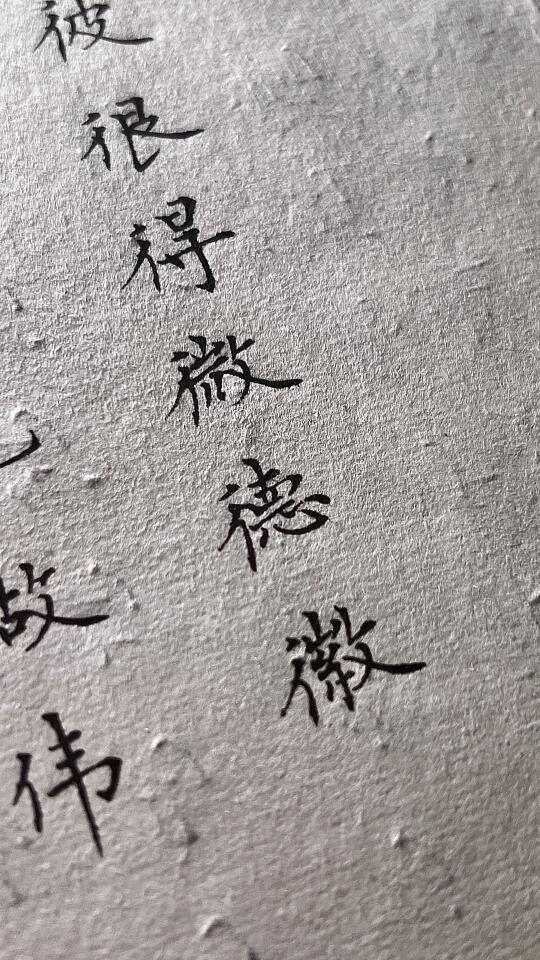 彼很得微德徽
故伟